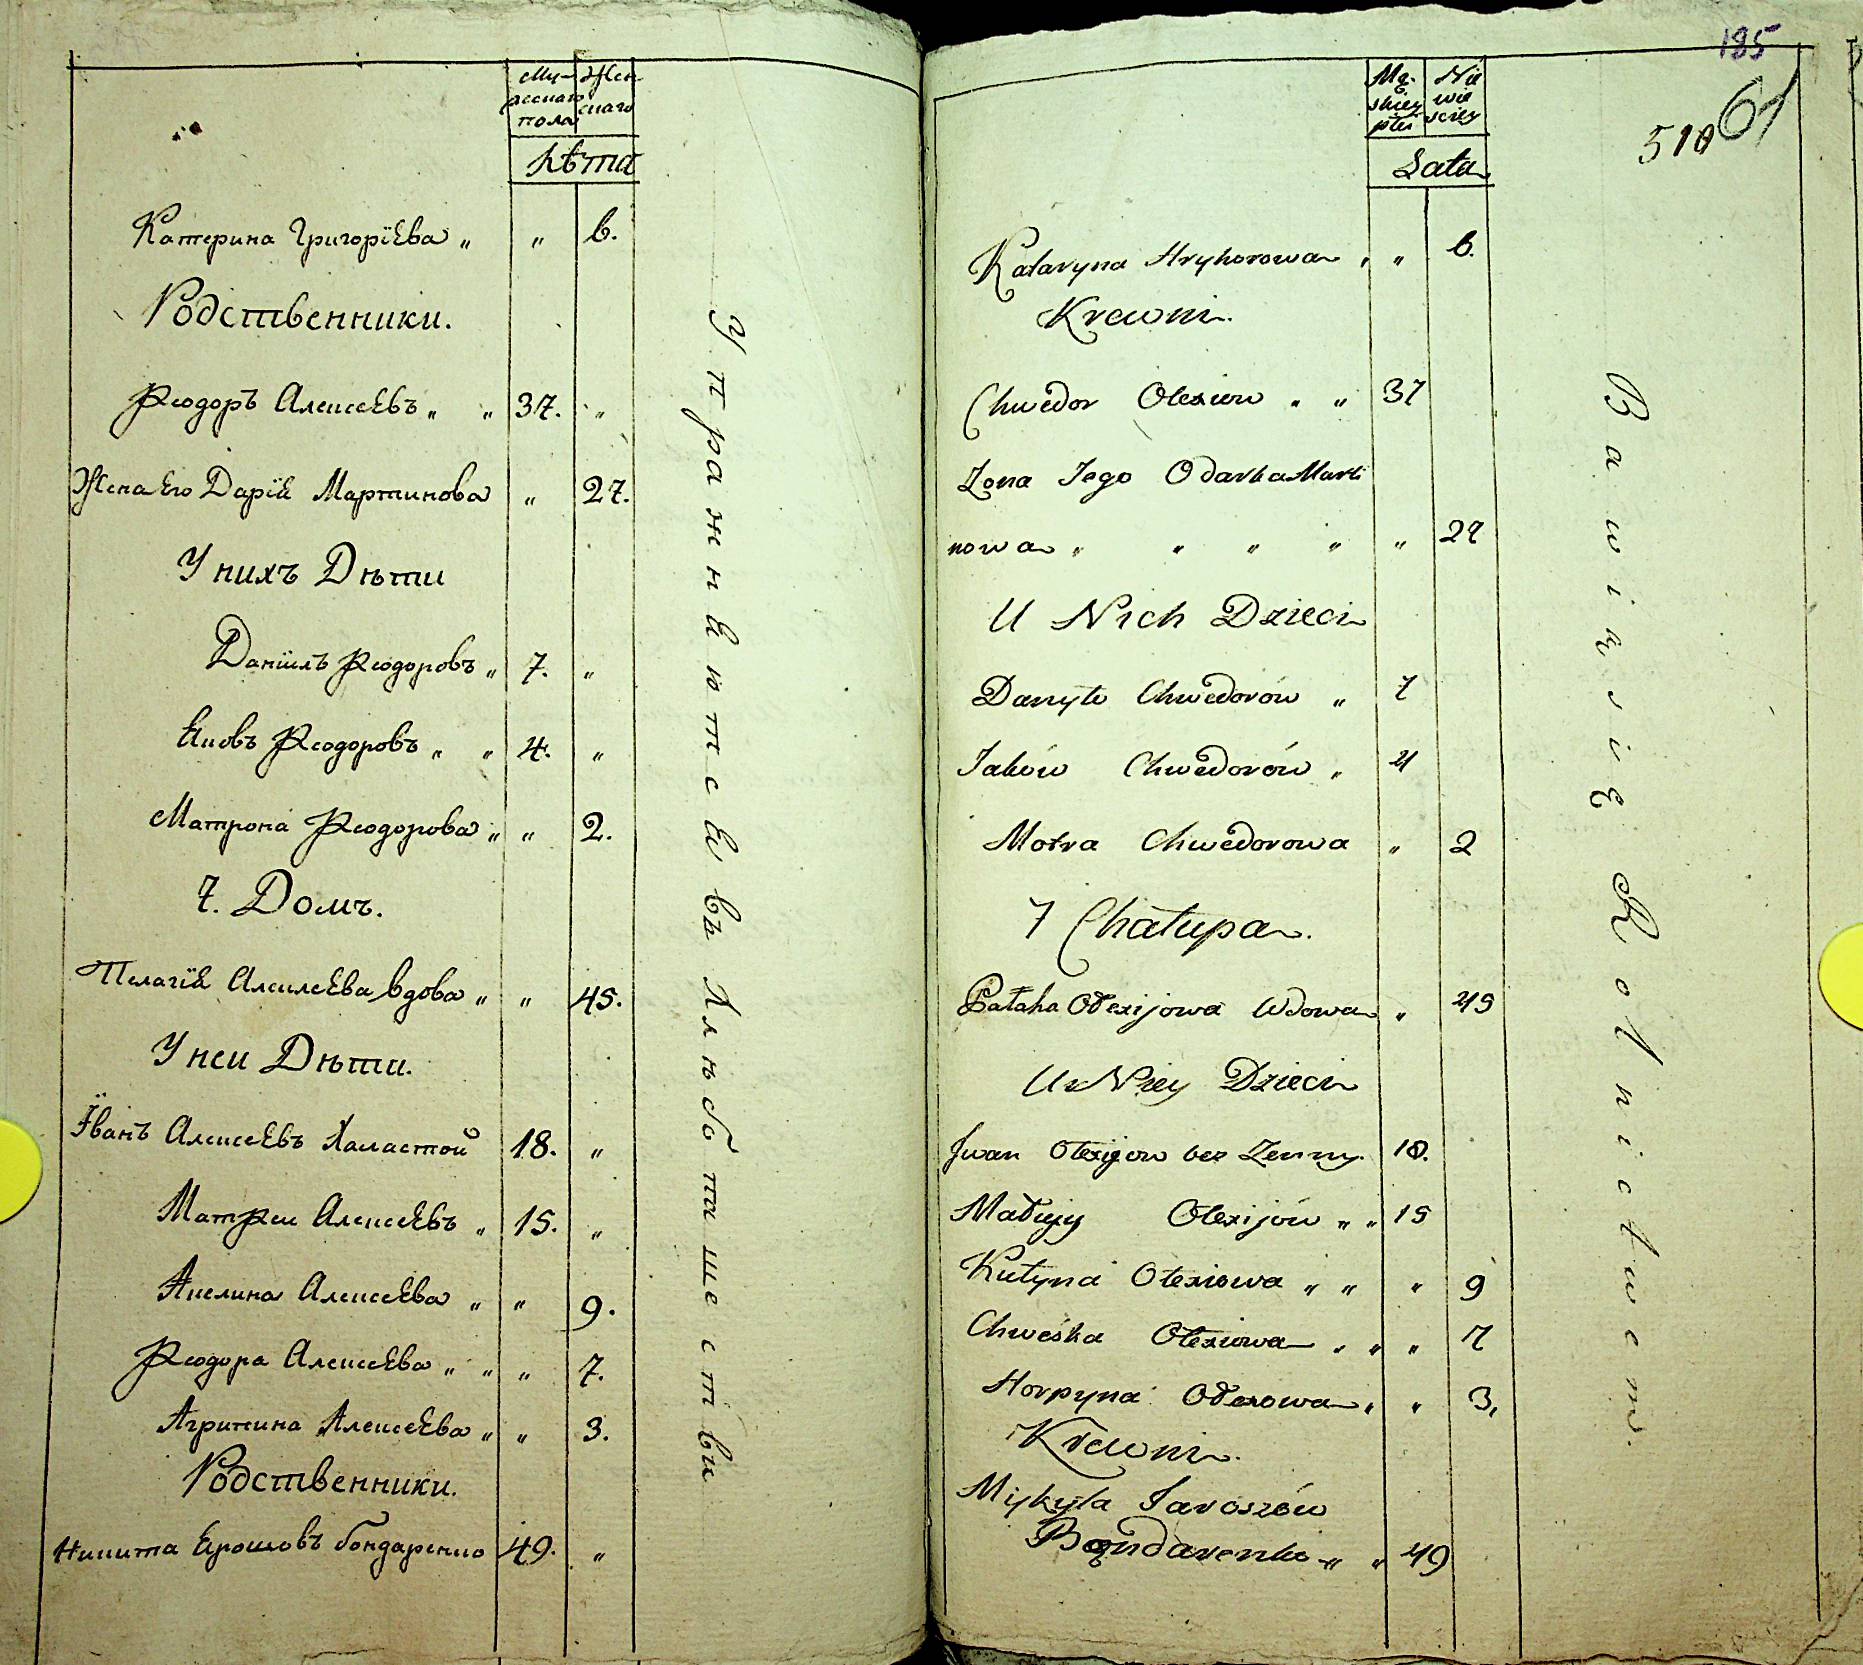 Му-
жескаго
пола
Жен
скаго
Лѣта
Катерина Григорїева „ „ 6.
Родственники.
Ѳеодоръ Алексеевъ „ „ 37. „
Жена Его Дарїя Мартинова „ 27.
У нихъ Дѣти
Данїилъ Ѳеодоровъ „ 7. „
Яковъ Ѳеодоровъ „ „ 4. „
Матрона Ѳеодорова „ „ 2.
7. Домъ.
Пелагїя Алексеева вдова „ „ 45.
У неи Дѣти.
Їванъ Алексеевъ Халастой 18. „
Матѳеи Алексеевъ „ 15. „
Акелина Алексеева „ „ 9.
Ѳеодора Алексеева „ „ „ 7.
Агрипина Алексеева „ „ 3.
Родственники.
Никита Ярошовъ Бондаренко 49. „
Упражняются въ Хлѣбопашестви
185
61
510
Mę-
skiey
płci
Nie
wie
sciey
Lata
Kataryna Hryhorowa „ „ 6.
Krewni.
Chwedor Olexiew „ „ 37
Żona Jego Odarka Marti
nowa „ „ „ „ „ 27
U Nich Dzieci
Danyło Chwedorów „ 7
Jaków Chwedorów „ 4
Motra Chwedorowa „ 2
7 Chałupa.
Pałaha Ołexijowa Wdowa „ 45
U Niey Dzieci
Jwan Olexijow bez Żenny. 18.
Matwjy Olexijów „ „ 15
Kulyna Olexiowa „ „ „ 9
Chweśka Olexiowa „ „ „ 7
Horpyna Ołexowa „ „ 3,
Krewni.
Mykyta Jaroszów
Bondarenko „ „ 49
Bawią się Rolnictwem.